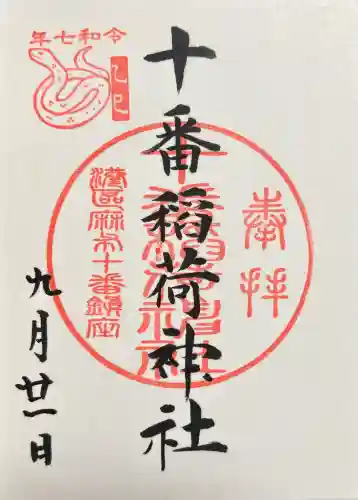 奉拝
十番稲荷神社
十番稲荷神社
港区麻布十番鎮座
令和七年
乙巳
九月廿一日